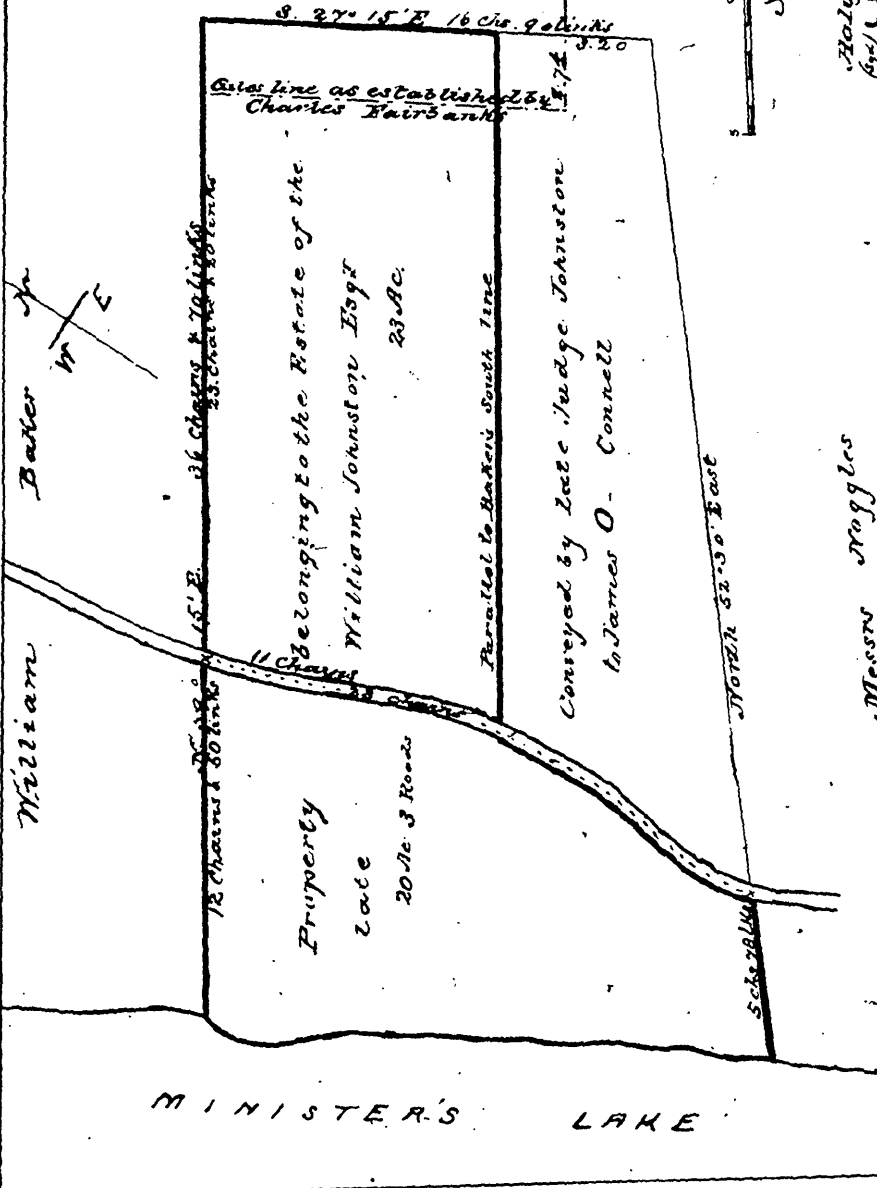 S. 27° 15' E. 16 Chs. 90 links
3.20
3.74
Giles line as established by
Charles Fairbanks
36 Chains & 70 links
23 Chains & 20 links
15' E.
12 Chains & 50 links
William Baker
E
W
Property belonging to the Estate of the
late William Johnston Esqr
23 Ac.
20 Ac 3 Roods
11 Chains
chains
Parallel to Baker's South line
Conveyed by late Judge Johnston
to James O - Connell
North 52° 30' East
5 Chs 78 Lks
Messrs Noggles
5
MINISTER'S LAKE